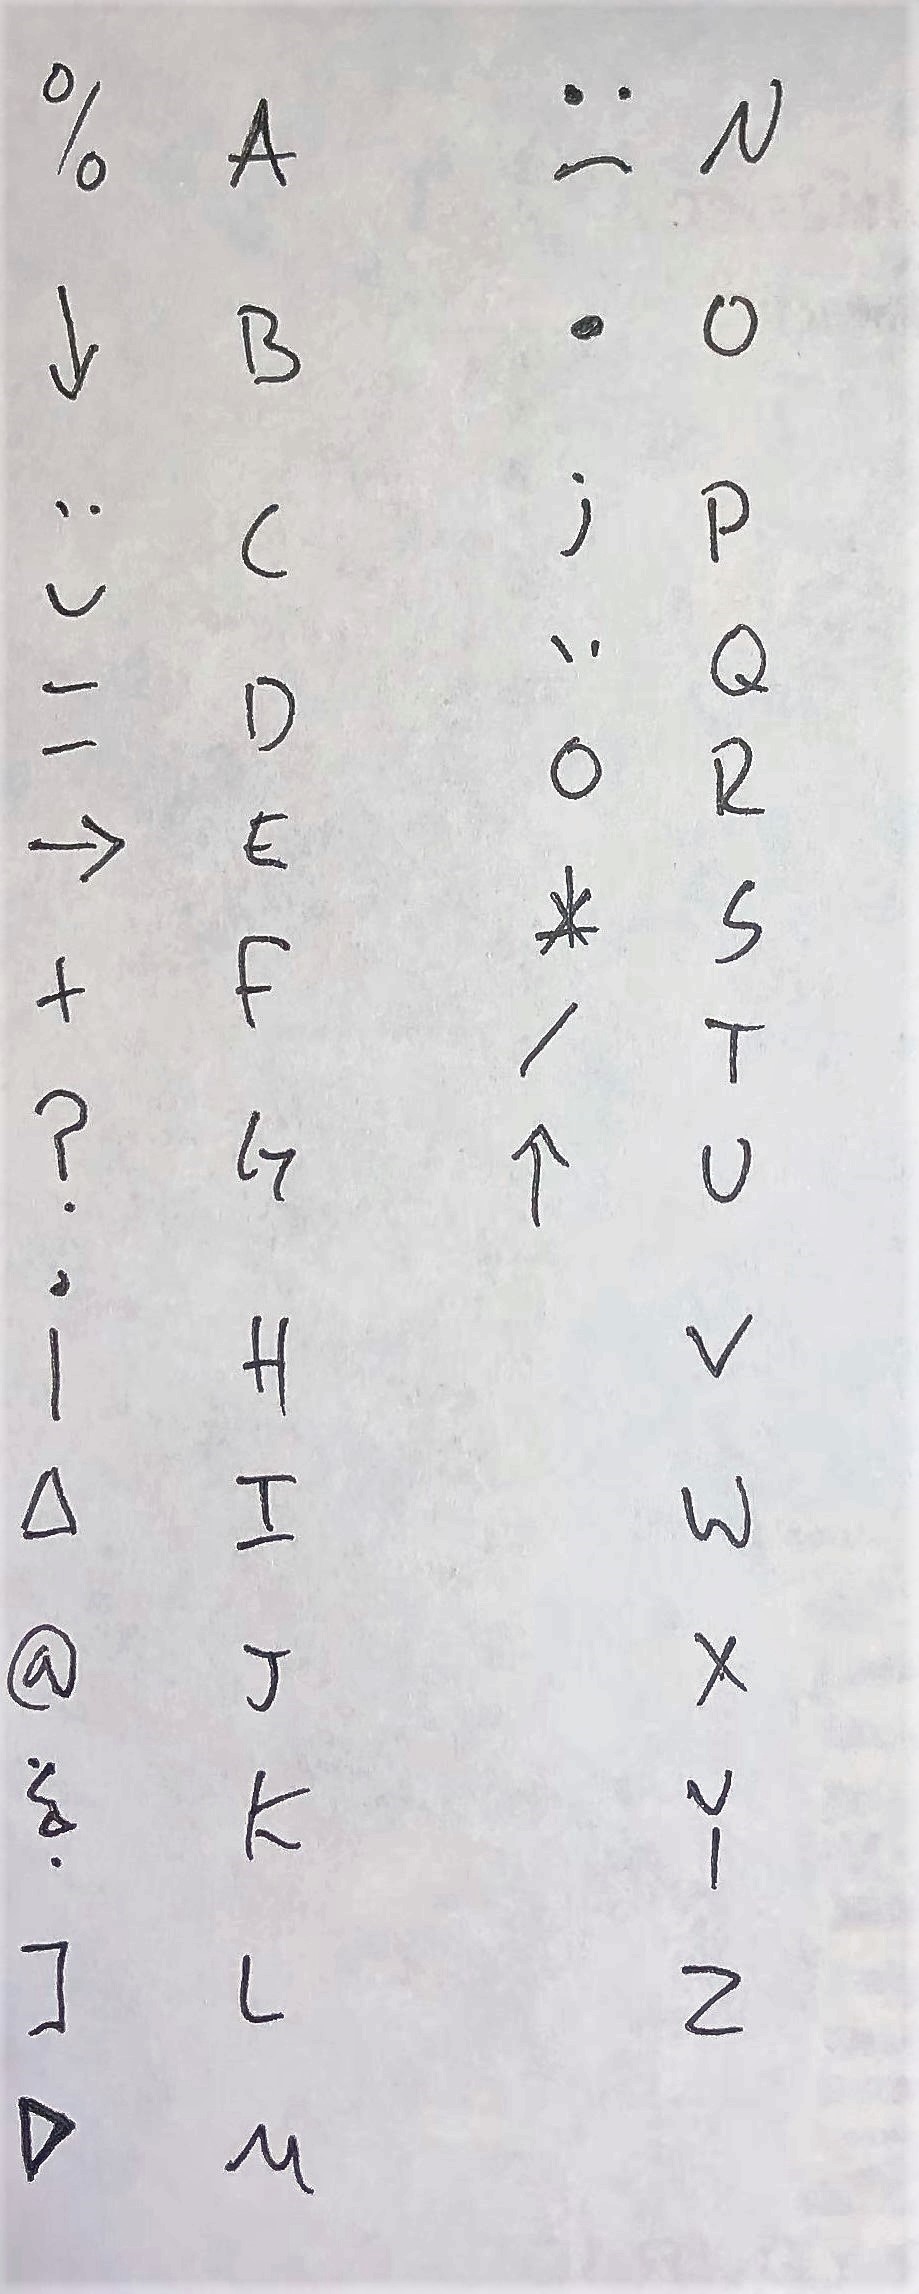 % A
↓ B
¨⌣ C
= D
→ E
+ F
? G
¡ H
△ I
@ J
K
] L
▷ M
¨⌢ N
• O
; P
¨ Q
O R
* S
/ T
↑ U
V
W
X
Y
Z